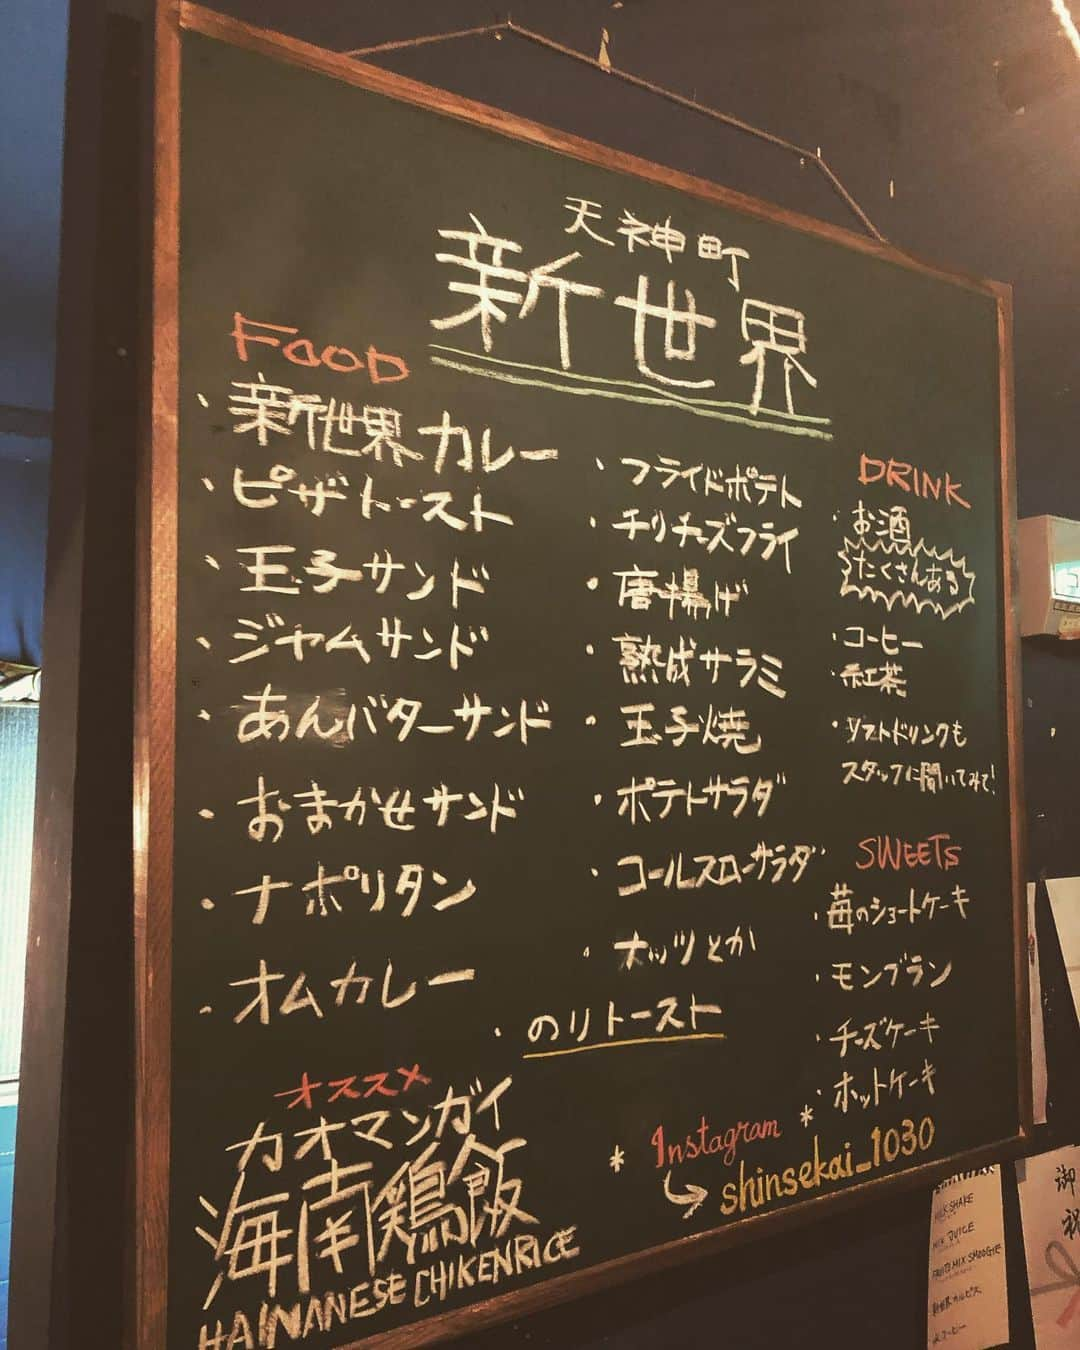 天神町
新世界
FOOD
・新世界カレー
・ピザトースト
・玉子サンド
・ジャムサンド
・あんバターサンド
・おまかせサンド
・ナポリタン
・オムカレー
・フライドポテト
・チリチーズフライ
・唐揚げ
・熟成サラミ
・玉子焼
・ポテトサラダ
・コールスローサラダ
・ナッツとか
・のりトースト
DRINK
・お酒
たくさんある
・コーヒー
・紅茶
・ソフトドリンクも
スタッフに聞いてみて!
SWEETS
・苺のショートケーキ
・モンブラン
・チーズケーキ
・ホットケーキ
オススメ
カオマンガイ
海南鶏飯
HAINANESE CHIKENRICE
* Instagram *
shinsekai_1030
MILK SHAKE
MIX JUICE
FRUITS MIX SMOOGIE
新世界カルピス
御祝